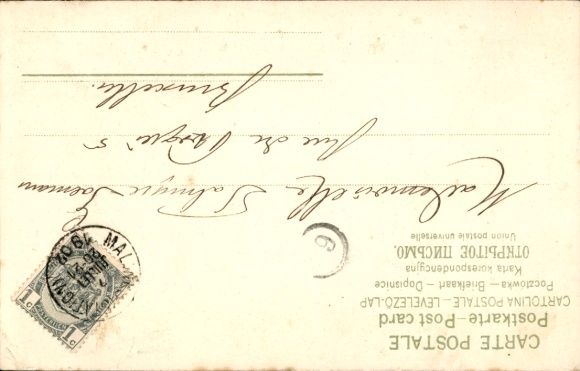 CARTE POSTALE
Postkarte – Post card
CARTOLINA POSTALE – LEVELEZÖ-LAP
Poczlowka – Briefkaart – Dopisnice
Karta korespondencyjna
ОТКРЫТОЕ ПИСЬМО.
Union postale universelle
6
Mademoiselle Palmyre
Rue du Progrès
Bruxelles.
1c 1c
MAL